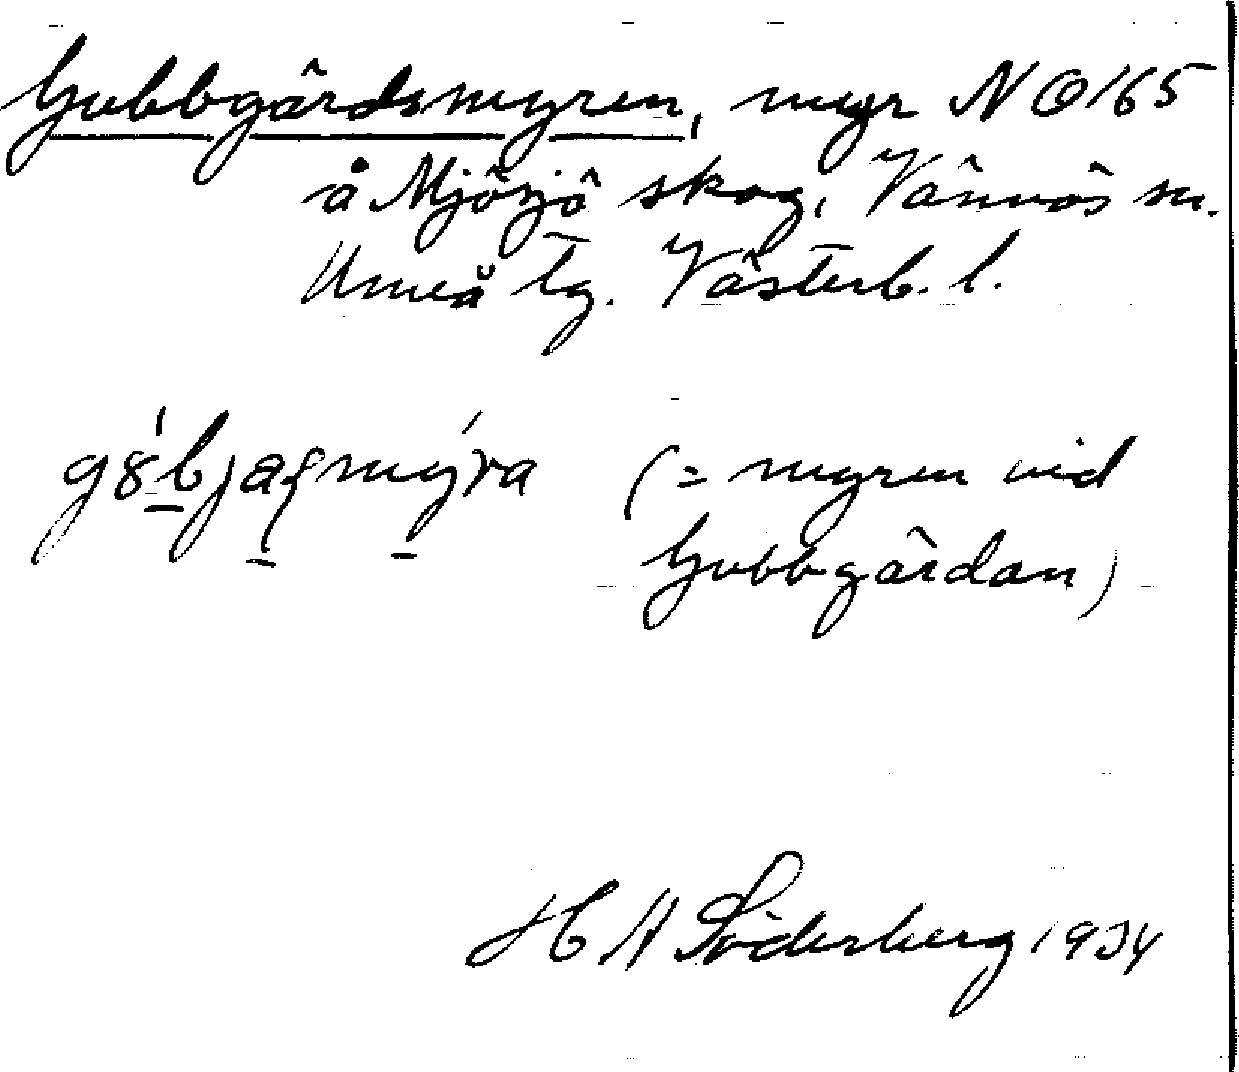 Gubbgärdsmyren, myr NO 165
å Mjösjö skog, Vännäs sn.
Umeå tg. Västerb. l.
(= myren vid
Gubbgärdan)
H A Söderberg 1934